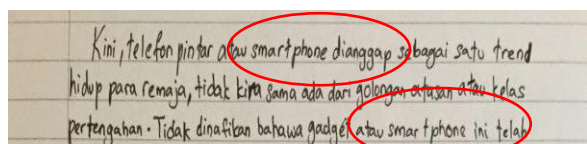 Kini, telefon pintar atau smartphone dianggap sebagai satu trend
hidup para remaja, tidak kira sama ada dari golongan atasan atau kelas
pertengahan. Tidak dinafikan bahawa gadget atau smartphone ini telah